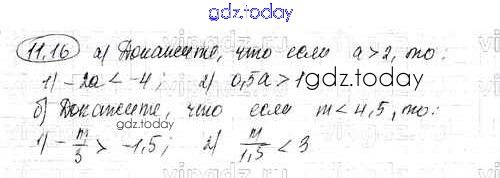 gdz.today
11.16 а) Докажите, что если a>2, то:
1) -2a < -4; 2) 0,5a > 1
gdz.today
б) Докажите, что если m < 4,5, то:
gdz.today
1) - m/3 > -1,5; 2) m/1,5 < 3